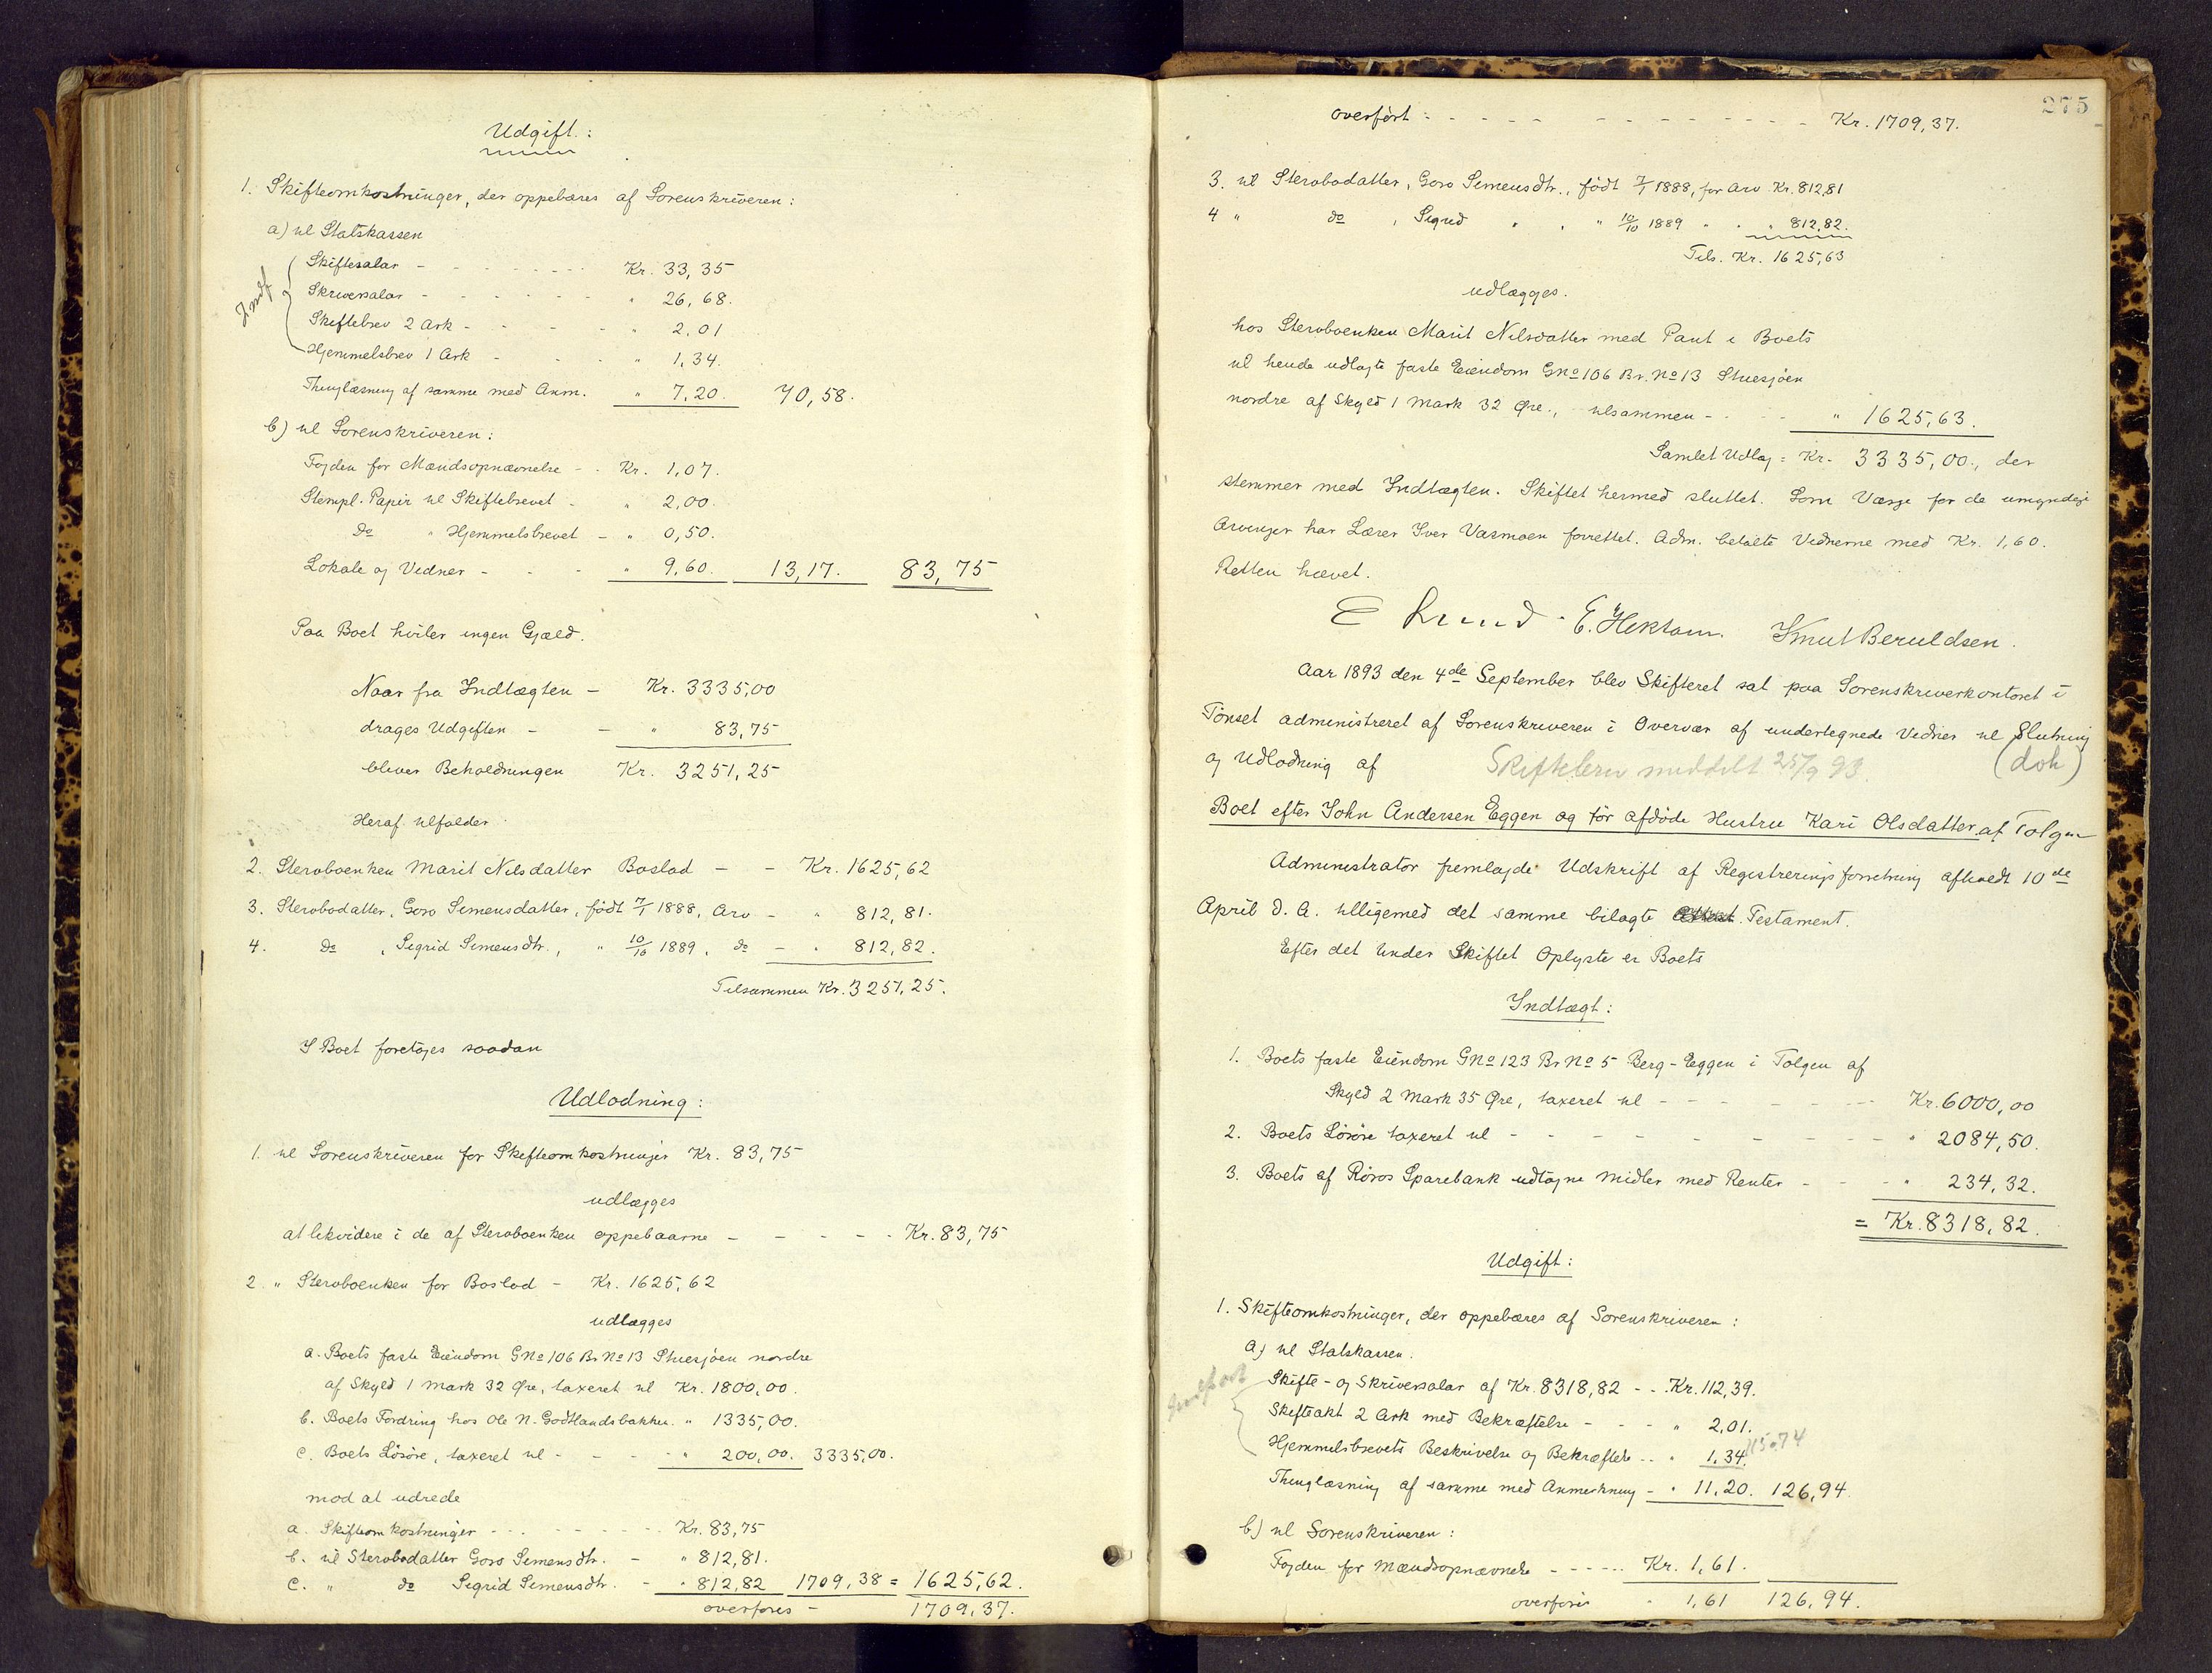 Udgift:
1. Skifteomkostninger, der oppebæres af Sorenskriveren:
a) til Statskassen
Skiftesalær - Kr. 33,35
Skriversalær - " 26,68.
Skiftebrev 2 Ark - " 2,01
Hjemmelsbrev 1 Ark - " 1,34.
Thinglæsning af samme med Anm. " 7,20. 70,58.
b) til Sorenskriveren:
Fogden for Mændsopnævnelse - Kr. 1,07.
Stempl. Papir til Skiftebrevet - " 2,00.
do " Hjemmelsbrevet - " 0,50.
Lokale og Vidner - " 9,60. 13,17. 83,75
Paa Boet hviler ingen Gjæld.
Naar fra Indtægten - Kr. 3335,00
drages Udgiften - " 83,75
bliver Beholdningen Kr. 3251,25
Heraf tilfalder
2. Stervboenken Marit Nilsdatter Boslod - - Kr. 1625,62
3. Stervbodatter, Goro Simensdatter, født 7/1 1888, Arv - " 812,81.
4. do , Sigrid Simensdtr., " 10/10 1889, do - " 812,82.
Tilsammen Kr. 3251,25.
I Boet foretoges saadan
Udlodning:
1. til Sorenskriveren for Skifteomkostninger Kr. 83,75
udlægges
at likvidere i de af Stervboenken oppebaarne - - - - - Kr. 83,75
2. " Stervboenken for Boslod - Kr. 1625,62
udlægges
a. Boets faste Eiendom GNo 106 Br No 13 Stuesjøen nordre
af Skyld 1 Mark 32 Øre, taxeret til Kr. 1800,00.
b. Boets Fordring hos Ole N. Godtlandsbakken. " 1335,00.
c. Boets Løsøre, taxeret til - - - " 200,00. 3335,00.
mod at udrede
a. Skifteomkostninger - - - Kr. 83,75
b. til Stervbodatter Goro Simensdtr. - " 812,81.
c. " do Sigrid Simensdtr. - " 812,82 1709,38 = 1625,62.
overføres - 1709,37.
275
overført: - - - - Kr. 1709,37.
3. til Stervbodatter, Goro Simensdtr., født 7/1 1888, for Arv Kr. 812,81
4 " do , Sigrid " , " 10/10 1889 " " " 812,82.
Tils. Kr. 1625,63
udlægges.
hos Stervboenken Marit Nilsdatter med Pant i Boets
til hende udlagte faste Eiendom GNo 106 Br. No 13 Stuesjøen
nordre af Skyld 1 Mark 32 Øre., tilsammen - - - " 1625,63.
Samlet Udlæg = Kr. 3335,00., der
stemmer med Indtægten. Skiftet hermed sluttet. Som Værge for de umyndige
Arvinger har Lærer Iver Vasmoen forrettet. Adm. betalte Vidnerne med Kr. 1,60.
Retten hævet.
E Lund E. Hektoen. Knut Beruldsen.
Aar 1893 den 4de September blev Skifteret sat paa Sorenskriverkontoret i
Tønset administreret af Sorenskriveren i Overvær af undertegnede Vidner til Slutning
og Udlodning af Skiftebrev meddelt 25/9 93. (doh)
Boet efter John Andersen Eggen og før afdøde Hustru Kari Olsdatter af Tolgen
Administrator fremlagde Udskrift af Registreringsforretning afholdt 10de
April d. A. tilligemed det samme bilagte Testament.
Efter det under Skiftet Oplyste er Boets
Indtægt:
1. Boets faste Eiendom GNo 123 Br No 5 Berg-Eggen i Tolgen af
Skyld 2 Mark 35 Øre, taxeret til - - - - Kr. 6000,00
2. Boets Løsøre taxeret til - - - - - " 2084,50.
3. Boets af Røros Sparebank udtagne Midler med Renter - - " 234,32.
= Kr. 8318,82.
Udgift:
1. Skifteomkostninger, der oppebæres af Sorenskriveren:
a) til Statskassen.
Skifte- og Skriversalær af Kr. 8318,82 - - Kr. 112,39.
Skifteakt 2 Ark med Bekræftelse - - - " 2,01.
Hjemmelsbrevets Beskrivelse og Bekræftelse - - " 1,34. 115.74
Thinglæsning af samme med Anmerkning - " 11,20. 126,94.
b) til Sorenskriveren:
Fogden for Mændsopnævnelse - - - - - Kr. 1,61.
overføres " 1,61 126,94.